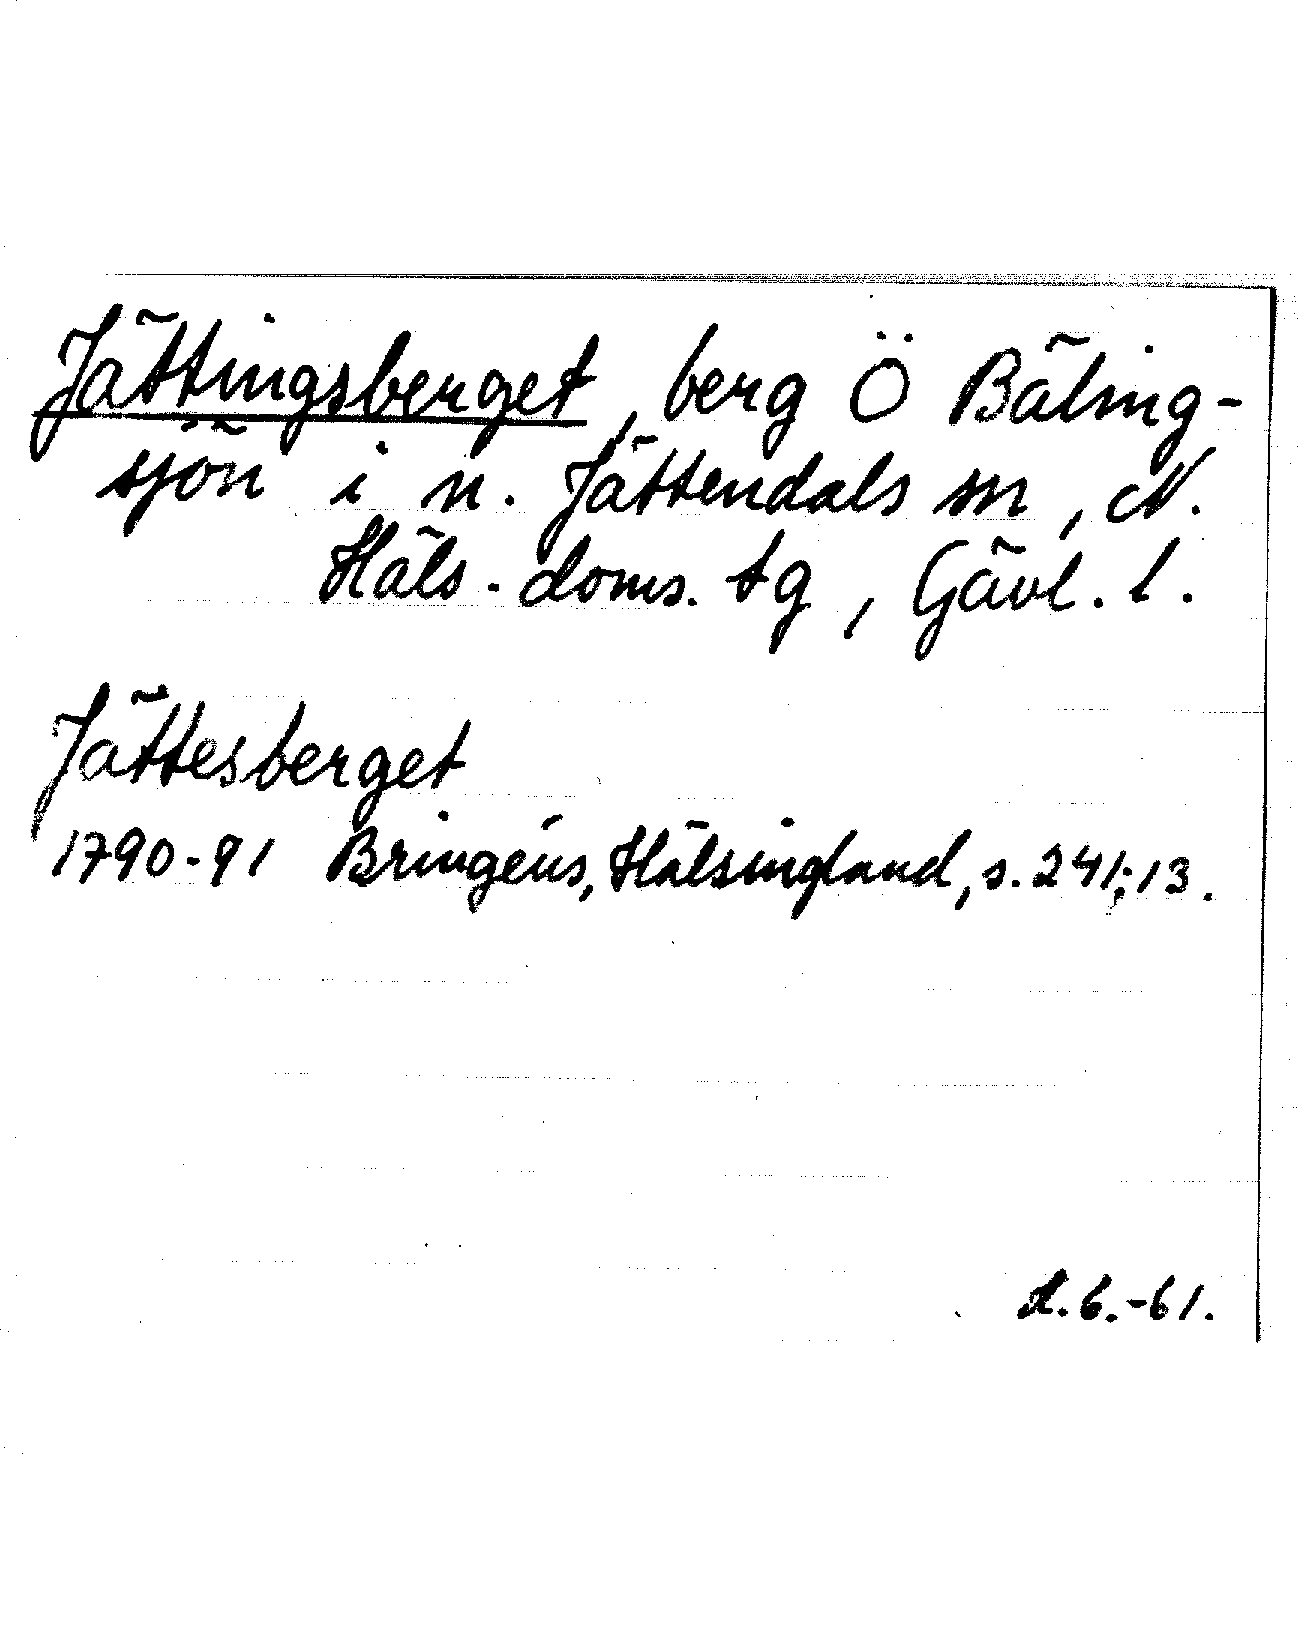 Jättingsberget, berg Ö Bäling-
sjön i n. Jättendals sn, N.
Häls. doms. tg, Gävl. l.
Jättesberget
1790-91 Bringéus, Hälsingland, s. 241; 13.
6.-61.